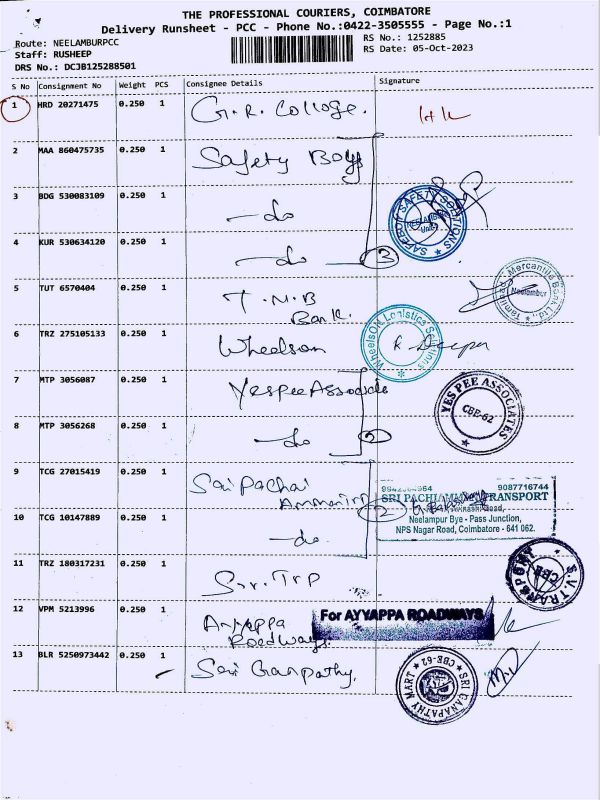 THE PROFESSIONAL COURIERS, COIMBATORE
Delivery Runsheet - PCC - Phone No.:0422-3505555 - Page No.:1
Route: NEELAMBURPCC
RS No.: 1252885
Staff: RUSHEEP
RS Date: 05-Oct-2023
DRS No.: DCJB125288501
S No Consignment No Weight PCS Consignee Details Signature
1 HRD 20271475 0.250 1 G.R. College.
2 MAA 860475735 0.250 1 Safety Boys
3 BDG 530083109 0.250 1 -do
SAFEBOY SAFETY SOLUTIONS
4 KUR 530634120 0.250 1 -do 3
5 TUT 6570404 0.250 1 T.M.B
Bank.
Tamilnad Mercantile Bank Ltd.,
Neelambur
6 TRZ 275105133 0.250 1 Wheelson
WheelsOn Logistics Solutions
R. Deepa
7 MTP 3056087 0.250 1 Yespee Associate
YES PEE ASSOCIATES
CBE-62
8 MTP 3056268 0.250 1 -do 2
9 TCG 27015419 0.250 1 Sri Pachai
Amman Trp
9087716744
SRI PACHIAMMAN TRANSPORT
Neelampur Bye - Pass Junction,
NPS Nagar Road, Coimbatore - 641 062.
10 TCG 10147889 0.250 1 -do. 2
11 TRZ 180317231 0.250 1 S.V. Trp
S.V. TRANSPORT
CBE
12 VPM 5213996 0.250 1 Ayyappa
Roadways.
For AYYAPPA ROADWAYS
13 BLR 5250973442 0.250 1 Sri Ganpathy.
SRI GANAPATHY MART
CBE-62